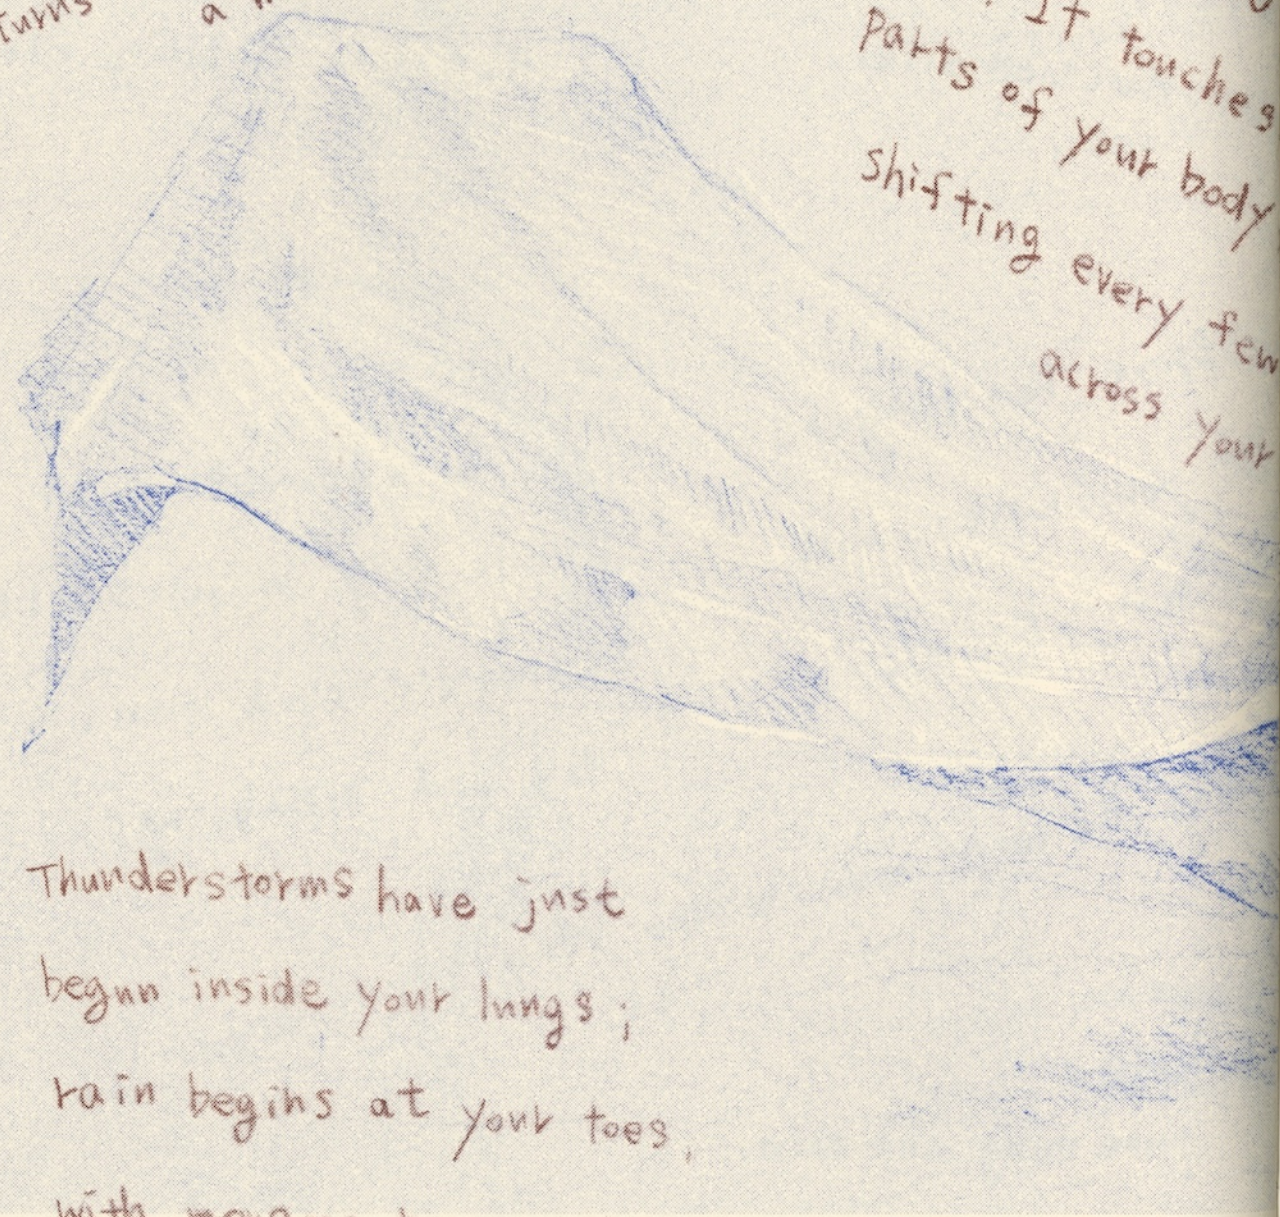 turns a
It touches
parts of your body
shifting every few
across your
Thunderstorms have just
begun inside your lungs;
rain begins at your toes,
with